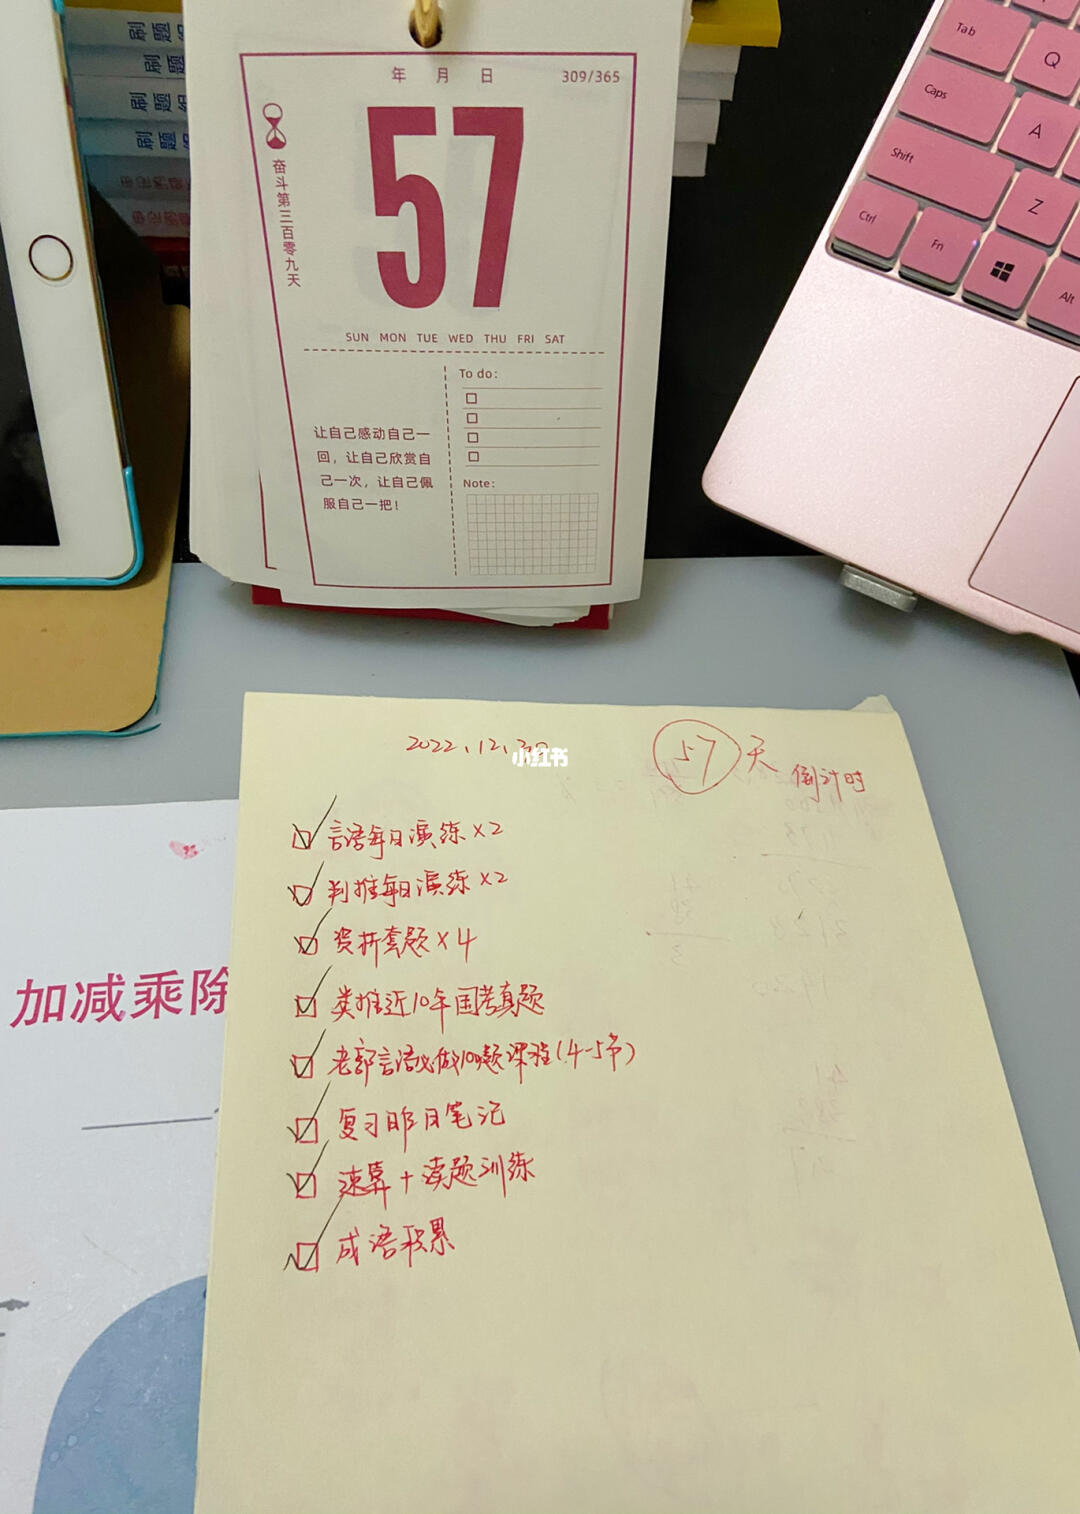 刷题
刷题
刷题
刷题
年 月 日 309/365
57
奋斗第三百零九天
SUN MON TUE WED THU FRI SAT
让自己感动自己一
回，让自己欣赏自
己一次，让自己佩
服自己一把！
To do:
Note:
Tab
Q
Caps
A
Shift
Z
Ctrl
Fn
Alt
2022.12.30
小红书
57天
倒计时
言语每日演练×2
判推每日演练×2
资析套题×4
类推近10年国考真题
老郭言语必做100题课程(4-5节)
复习昨日笔记
速算+读题训练
成语积累
加减乘除